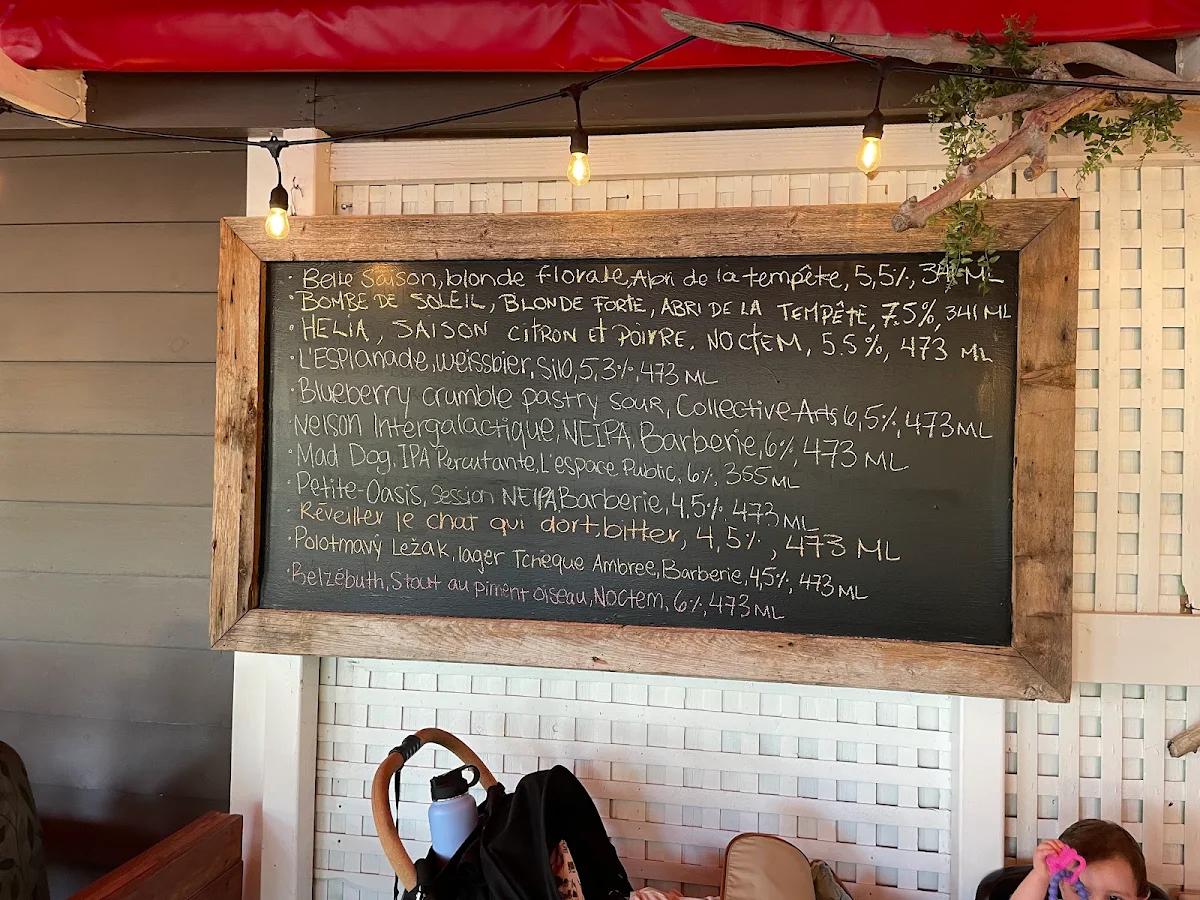 · Belle Saison, blonde florale, Abri de la tempête, 5,5%, 341 ML
· BOMBE DE SOLEIL, BLONDE FORTE, ABRI DE LA TEMPÊTE, 7.5%, 341 ML
· HELIA, SAISON CITRON et POIVRE, NOCTEM, 5.5%, 473 ML
· L'ESPLANADE, weissbier, Silo, 5,3%, 473 ML
· Blueberry crumble pastry sour, Collective Arts 6,5%, 473 ML
· Nelson Intergalactique, NEIPA, Barberie, 6%, 473 ML
· Mad Dog, IPA Percutante, L'espace Public, 6%, 355 ML
· Petite-Oasis, Session NEIPA, Barberie, 4,5%, 473 ML
· Réveiller le chat qui dort, bitter, 4,5%, 473 ML
· Polotmavý Ležak, lager Tchèque Ambree, Barberie, 4,5%, 473 ML
· Belzébuth, Stout au piment oiseau, Noctem, 6%, 473 ML